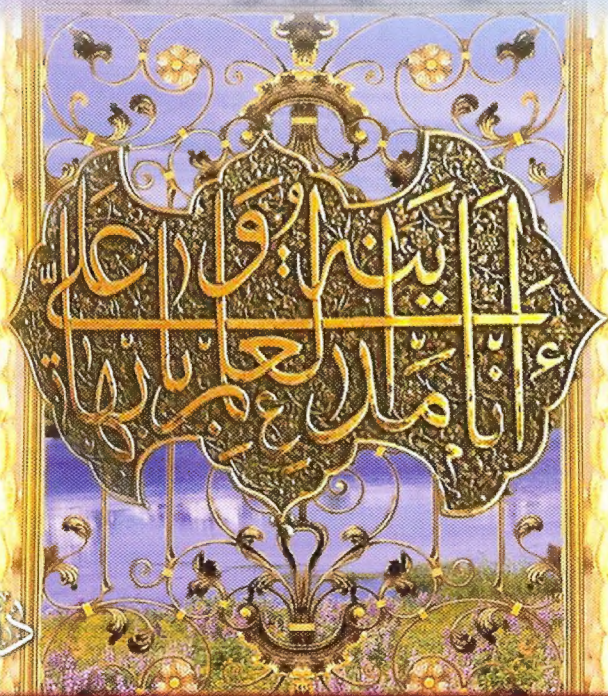 أَنَا مَدِينَةُ الْعِلْمِ وَ عَلِيٌّ بَابُهَا